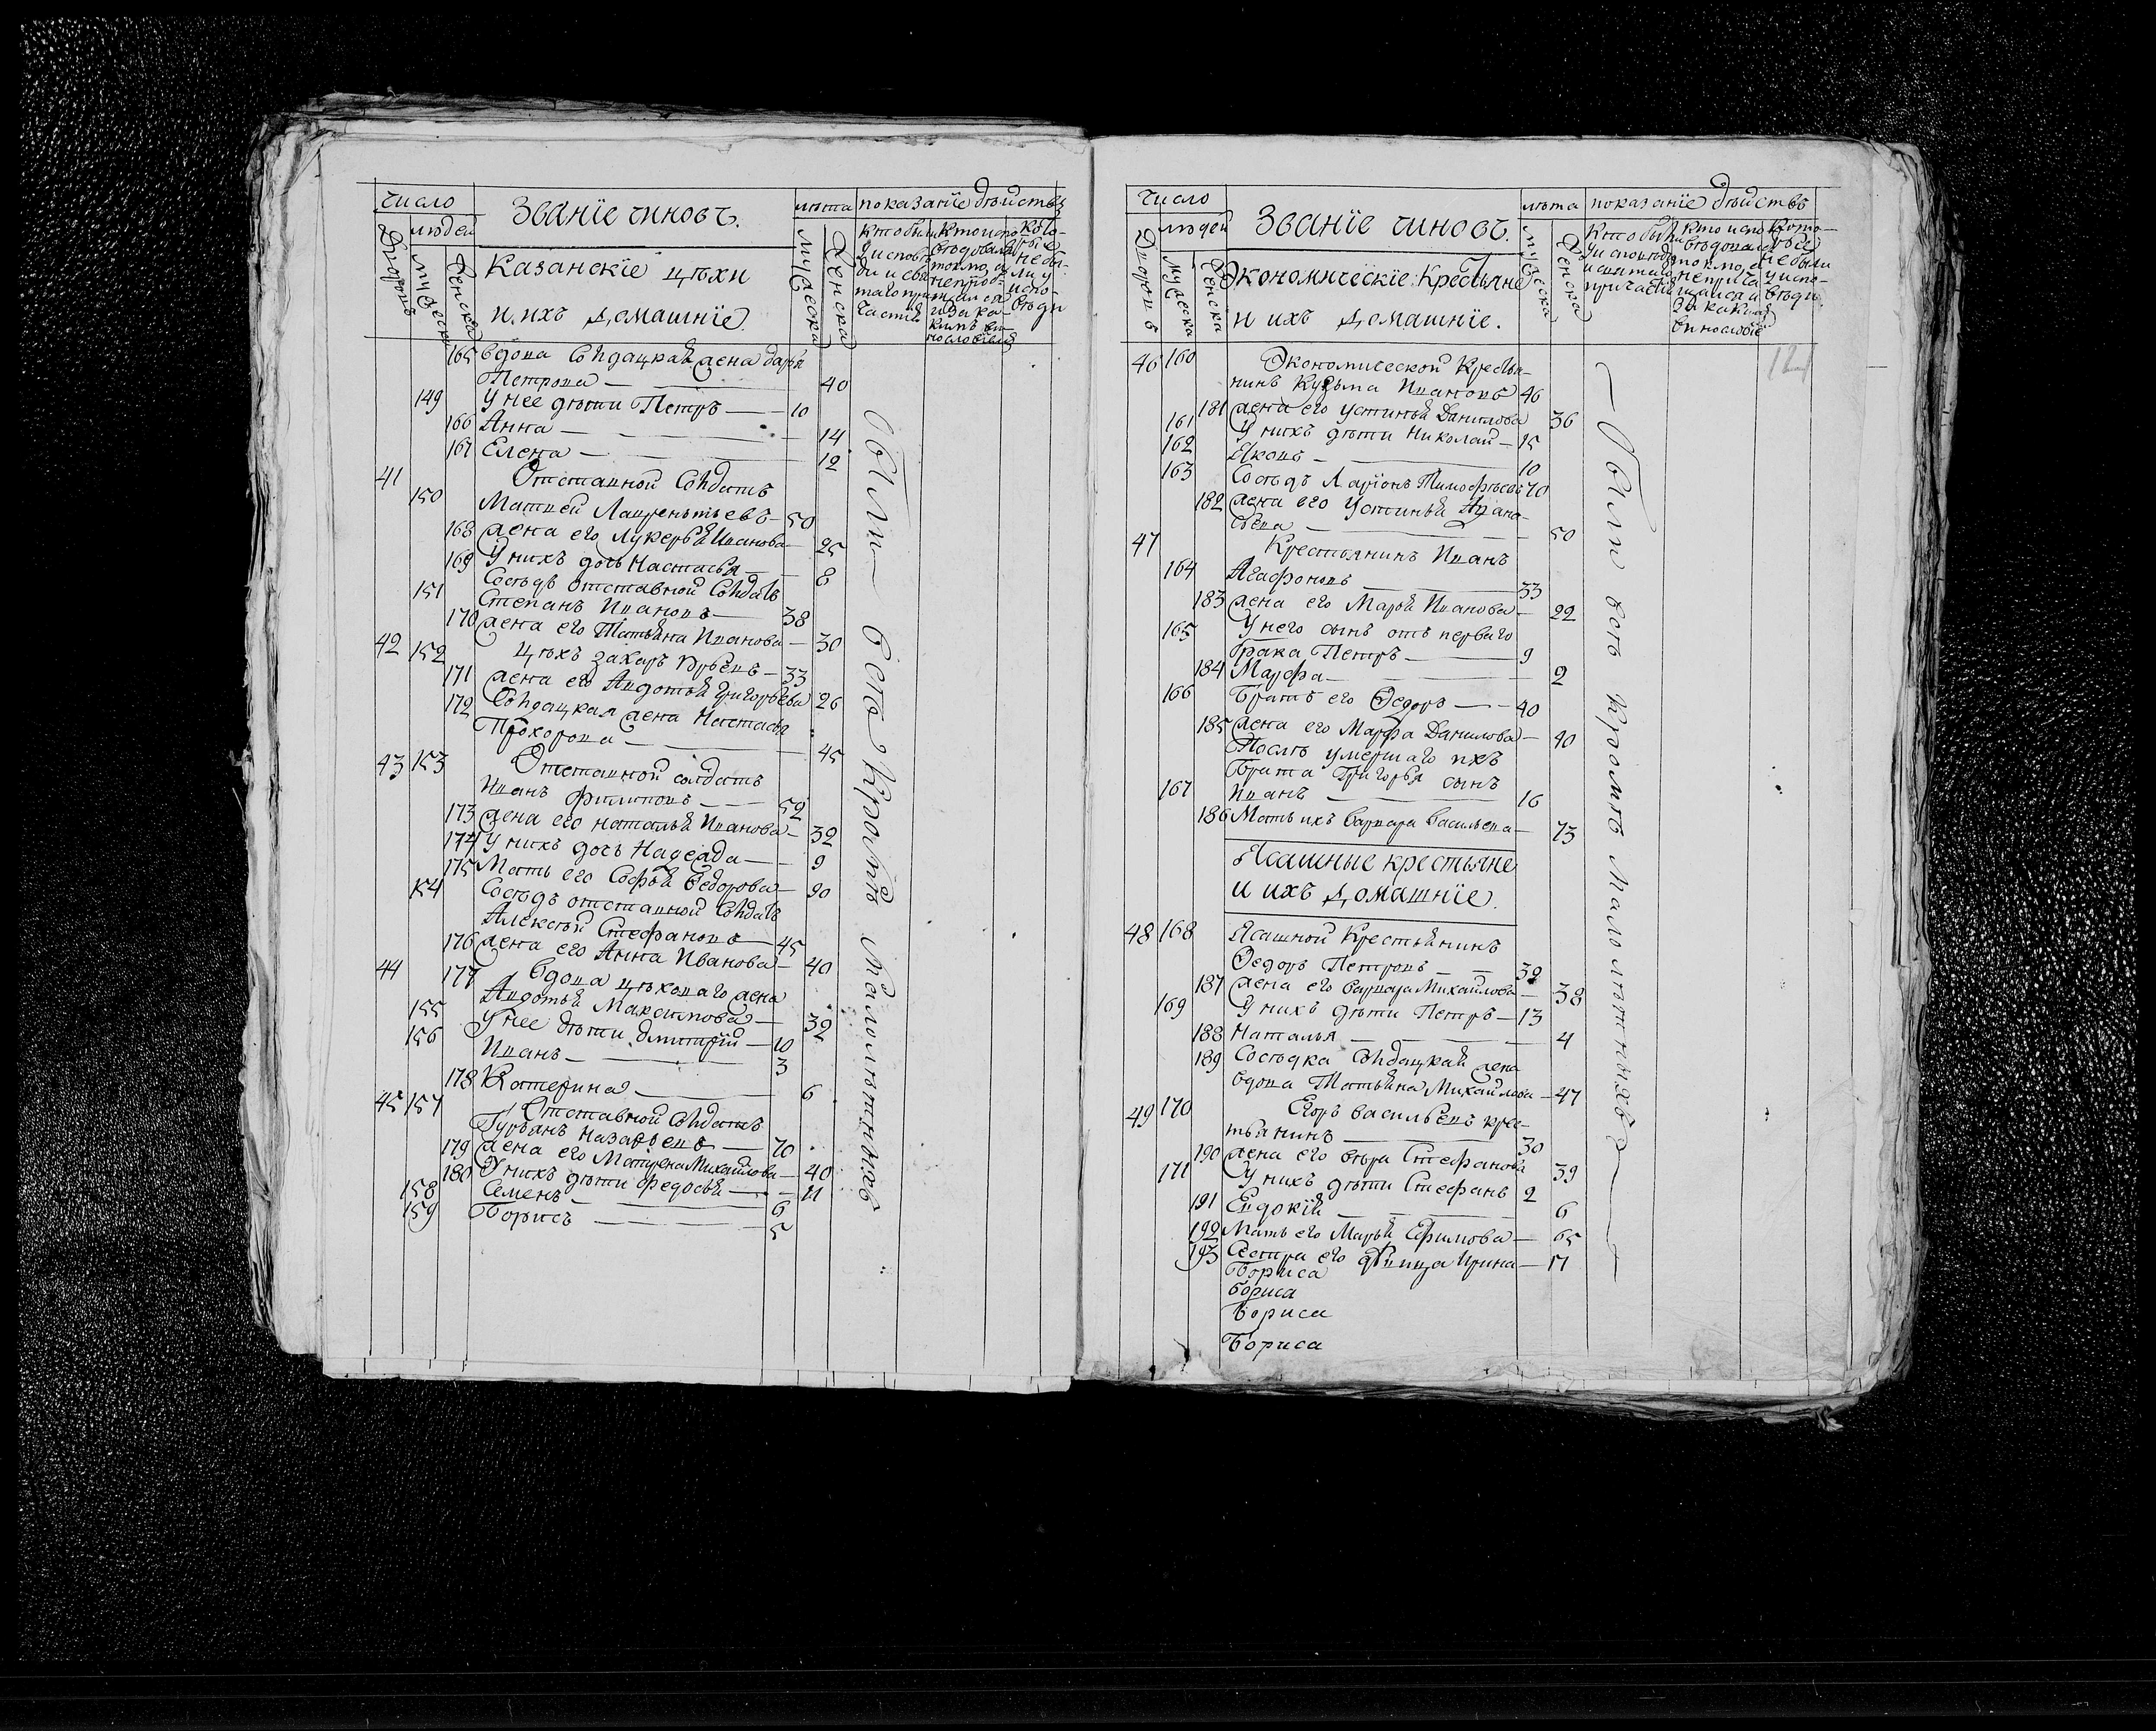 число
Званїе чиновъ.
лѣта
показанїе дѣйствъ
людей
Дворовъ
мужеска
женска
мужеска
женска
Казанскїе цѣхи
и ихъ домашнїе.
165 вдова солдацкая жена дарья
Петрова — 40
149 У нее дѣти Петръ — 10
166 Анна — 14
167 Елена — 12
41 Отставной Солдатъ
150 Матвей Лаврентьевъ — 50
168 жена его Лукерья Иванова — 25
169 У нихъ дочь Настасья — 8
Сосѣдъ отставной Солдатъ
151 Степанъ Ивановъ — 38
170 жена его Татьяна Иванова — 30
42 152 цѣхъ захаръ Юрьевъ — 33
171 жена его Авдотья Григорьева 26
172 Солдацкая жена Настасья
Прохорова — 45
43 153 Отставной солдатъ
Иванъ филиповъ — 52
173 жена его наталья Иванова — 32
174 У нихъ дочь Надежда — 9
175 Мать его Софья Федорова — 90
154 Сосѣдъ отставной Солдатъ
Алексѣй Стефановъ — 45
176 жена его Анна Иванова — 40
44 177 вдова цѣховаго жена
Авдотья Максимова — 32
155 У нее дѣти дмитрїй — 10
156 Иванъ — 3
178 Катерина — 6
45 157 Отставной Солдатъ
Гурьянъ назарьевъ — 70
179 жена его Матрена Михайлова — 40
180 У нихъ дѣти федосья — 11
158 Семенъ — 6
159 Борисъ — 5
Были всѣ кромѣ малолѣтныхъ
число
Званїе чиновъ.
лѣта
показанїе дѣйствъ
людей
Дворовъ
мужеска
женска
мужеска
женска
Экономическїе Крестьяне
и ихъ домашнїе.
46 160 Экономической Крестья-
нинъ Кузьма Ивановъ 46
181 жена его устинья Данилова 36
161 У нихъ дѣти Николай — 15
162 Яковъ — 10
163 Сосѣдъ Ларїонъ Тимофѣевъ 70
182 жена его Устинья Афана-
сьева — 50
47 Крестьянинъ Иванъ
164 Агафоновъ — 33
183 жена его Марья Иванова — 22
165 У него сынъ отъ перваго
брака Петръ — 9
184 Марфа — 2
166 Братъ его Ѳедоръ — 40
185 жена его Марфа Данилова — 40
Послѣ умершаго ихъ
брата Григорья сынъ
167 Иванъ — 16
186 Мать ихъ варвара васильева — 73
Ясашные крестьяне
и ихъ домашнїе.
48 168 Ясашной Крестьянинъ
Ѳедоръ Петровъ — 32
187 жена его варвара Михайлова — 38
169 У нихъ дѣти Петръ — 13
188 Наталья — 4
189 Сосѣдка Солдацкая жена
вдова Татьяна Михайлова — 47
49 170 Егоръ васильевъ крес-
тьянинъ — 30
190 жена его вѣра Стефанова 39
171 У нихъ дѣти Стефанъ 2
191 Евдокїя — 6
192 Мать его Марья Ефимова — 65
193 Сестра его дѣвица Ирина — 17
Бориса
бориса
Бориса
Бориса
Были всѣ кромѣ малолѣтныхъ